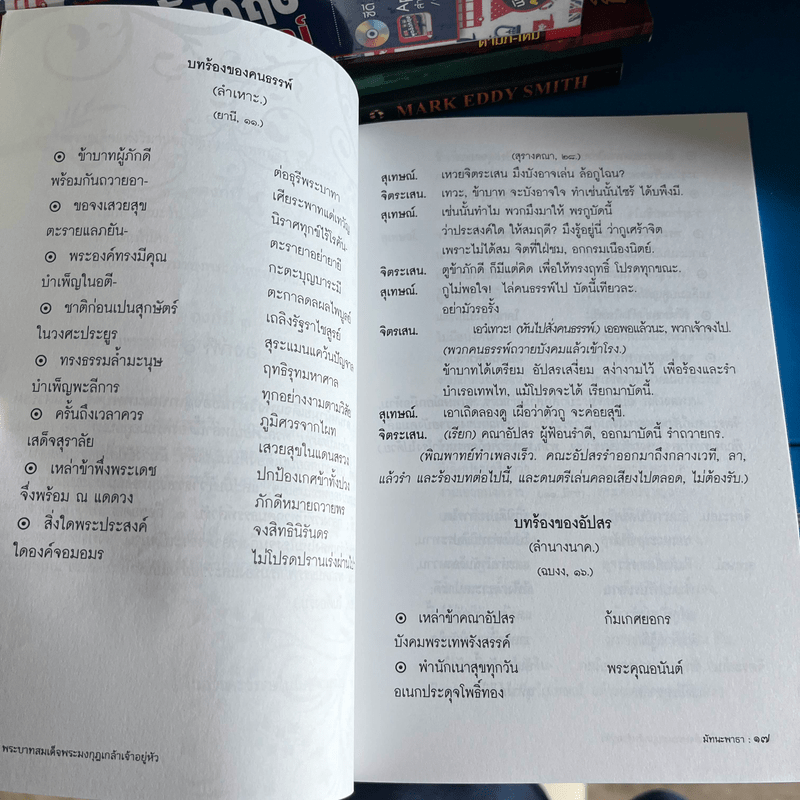 MARK EDDY SMITH
บทร้องของคนธรรพ์
(ลำเหาะ.)
(ยานี, ๑๑.)
๏ ข้าบาทผู้ภักดี ต่อธุรีพระบาทา
พร้อมกันถวายอา- เศียระพาทแด่เทวัญ
๏ ขอจงเสวยสุข นิราศทุกข์ไร้โรคัน-
ตะรายแลภยัน- ตะรายาอย่ายายี
๏ พระองค์ทรงมีคุณ กะตะบุญบาระมี
บำเพ็ญในอตี- ตะกาลดลผลไพบูลย์
๏ ชาติก่อนเปนสุกษัตร์ เถลิงรัฐราไชสูรย์
ในวงศะประยูร สุระแมนแคว้นปัญจาล
๏ ทรงธรรมล้ำมะนุษ ฤทธิรุทมหาศาล
บำเพ็ญพะลีการ ทุกอย่างงามตามวิสัย
๏ ครั้นถึงเวลาควร ภูมิศวรจากไผท
เสด็จสุราลัย เสวยสุขในแดนสรวง
๏ เหล่าข้าพึ่งพระเดช ปกป้องเกศข้าทั้งปวง
จึ่งพร้อม ณ แดดวง ภักดีหมายถวายพร
๏ สิ่งใดพระประสงค์ จงสิทธินิรันดร
ใดองค์จอมอมร ไม่โปรดปรานเร่งผ่านไป
พระบาทสมเด็จพระมงกุฎเกล้าเจ้าอยู่หัว
(สุรางคณา, ๒๘.)
สุเทษณ์. เหวยจิตระเสน มึงบังอาจเล่น ล้อกูไฉน?
จิตระเสน. เทวะ, ข้าบาท จะบังอาจใจ ทำเช่นนั้นไซร้ ได้บพึงมี.
สุเทษณ์. เช่นนั้นทำไม พวกมึงมาให้ พรกูบัดนี้
ว่าประสงค์ใด ให้สมฤดี? มึงรู้อยู่นี่ ว่ากูเศร้าจิต
เพราะไม่ได้สม จิตที่ใฝ่ชม, อกกรมเนืองนิตย์.
จิตระเสน. ตูข้าภักดี ก็มีแต่คิด เพื่อให้ทรงฤทธิ์ โปรดทุกขณะ.
สุเทษณ์. กูไม่พอใจ! ไล่คนธรรพ์ไป บัดนี้เทียวละ.
อย่ามัวรอรั้ง
จิตรเสน. เอวํเทวะ! (หันไปสั่งคนธรรพ์.) เออพอแล้วนะ, พวกเจ้าจงไป.
(พวกคนธรรพ์ถวายบังคมแล้วเข้าโรง.)
ข้าบาทได้เตรียม อัปสรเสงี่ยม สง่างามไว้ เพื่อร้องและรำ
บำเรอเทพไท, แม้โปรดจะได้ เรียกมาบัดนี้.
สุเทษณ์. เอาเถิดลองดู เผื่อว่าตัวกู จะค่อยสุขี.
จิตระเสน. (เรียก) คณาอัปสร ผู้ฟ้อนรำดี, ออกมาบัดนี้ รำถวายกร.
(พิณพาทย์ทำเพลงเร็ว. คณะอัปสรรำออกมาถึงกลางเวที, ลา,
แล้วรำ และร้องบทต่อไปนี้, และดนตรีเล่นคลอเสียงไปตลอด, ไม่ต้องรับ.)
บทร้องของอัปสร
(ลำนางนาค.)
(ฉบงง, ๑๖.)
๏ เหล่าข้าคณาอัปสร ก้มเกศยอกร
บังคมพระเทพรังสรรค์
๏ พำนักเนาสุขทุกวัน พระคุณอนันต์
อเนกประดุจโพธิ์ทอง
มัทนะพาธา : ๑๗